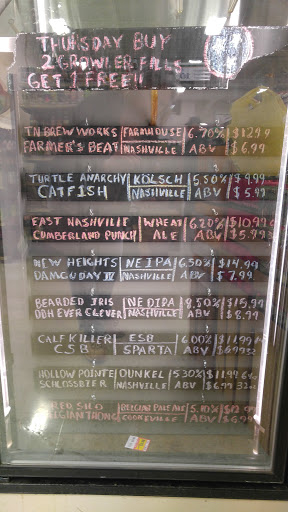 THURSDAY BUY
2 GROWLER FILLS
GET 1 FREE!!
TN BREW WORKS FARMHOUSE 6.70% $12.99
FARMER'S BEAT NASHVILLE ABV $6.99
TURTLE ANARCHY KÖLSCH 5.50% $9.99
CATFISH NASHVILLE ABV $5.99
EAST NASHVILLE WHEAT 6.20% $10.99
CUMBERLAND PUNCH ALE ABV $5.99
NEW HEIGHTS NE IPA 6.50% $14.99
NASHVILLE ABV $7.99
BEARDED IRIS NE DIPA 8.50% $15.99
DDH EVER CLEVER NASHVILLE ABV $8.99
CALFKILLER ESB 6.00% $11.99 64
CSB SPARTA ABV $6.99 32
HOLLOW POINTE DUNKEL 5.30% $11.99 64
NASHVILLE ABV $6.99 32
RED SILO BELGIAN PALE ALE 5.10%
COOKEVILLE ABV $6.99